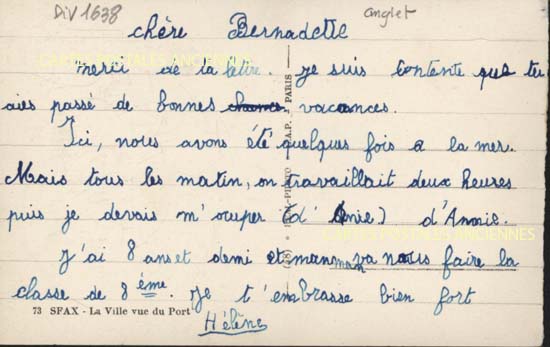 Div 1638
anglet
chère Bernadette
merci de ta lettre. je suis contente que tu
aies passé de bonnes vacances.
Ici, nous avons été quelques fois a la mer.
Mais tous les matin, on travaillait deux heures
puis je devais m'ocuper (d' Annie) d'Annie.
J'ai 8 ans et demi et maman va nous faire la
classe de 8 ème. Je t'embrasse bien fort
Hélène
73 SFAX - La Ville vue du Port
PARIS
CARTES POSTALES ANCIENNES